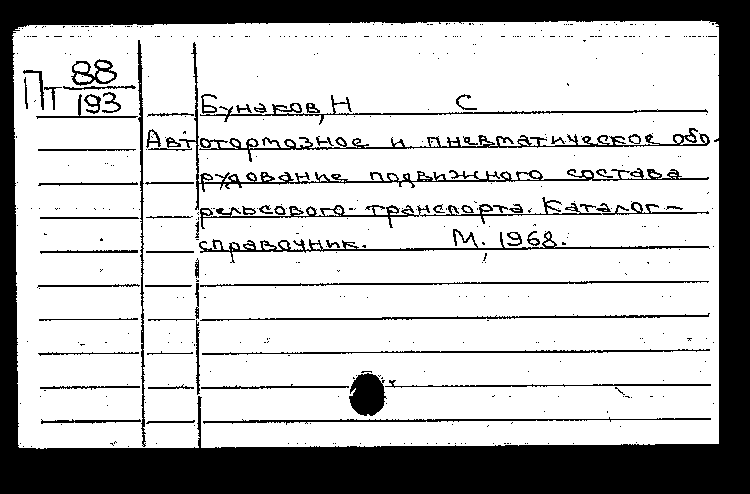 Пт 88
193
Бунаков, Н С
Автотормозное и пневматическое обо-
рудование подвижного состава
рельсового транспорта. Каталог-
справочник. М., 1968.